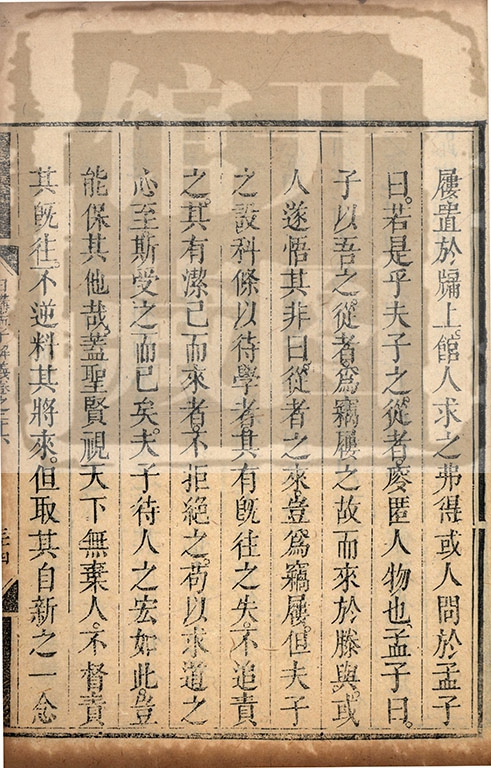 屨置於牖上。館人求之弗得。或人問於孟子
曰。若是乎夫子之從者。廋匿人物也。孟子曰。
子以吾之從者。爲竊屨之故而來於滕與。或
人遂悟其非曰。從者之來。豈爲竊屨。但夫子
之設科條以待學者。其有旣往之失。不追責
之。其有潔己而來者。不拒絕之。苟以求道之
心至斯受之而已矣。夫子待人之宏如此。豈
能保其他哉。蓋聖賢視天下無棄人。不督責
其旣往。不逆料其將來。但取其自新之一念
日講四書解義卷之二十六